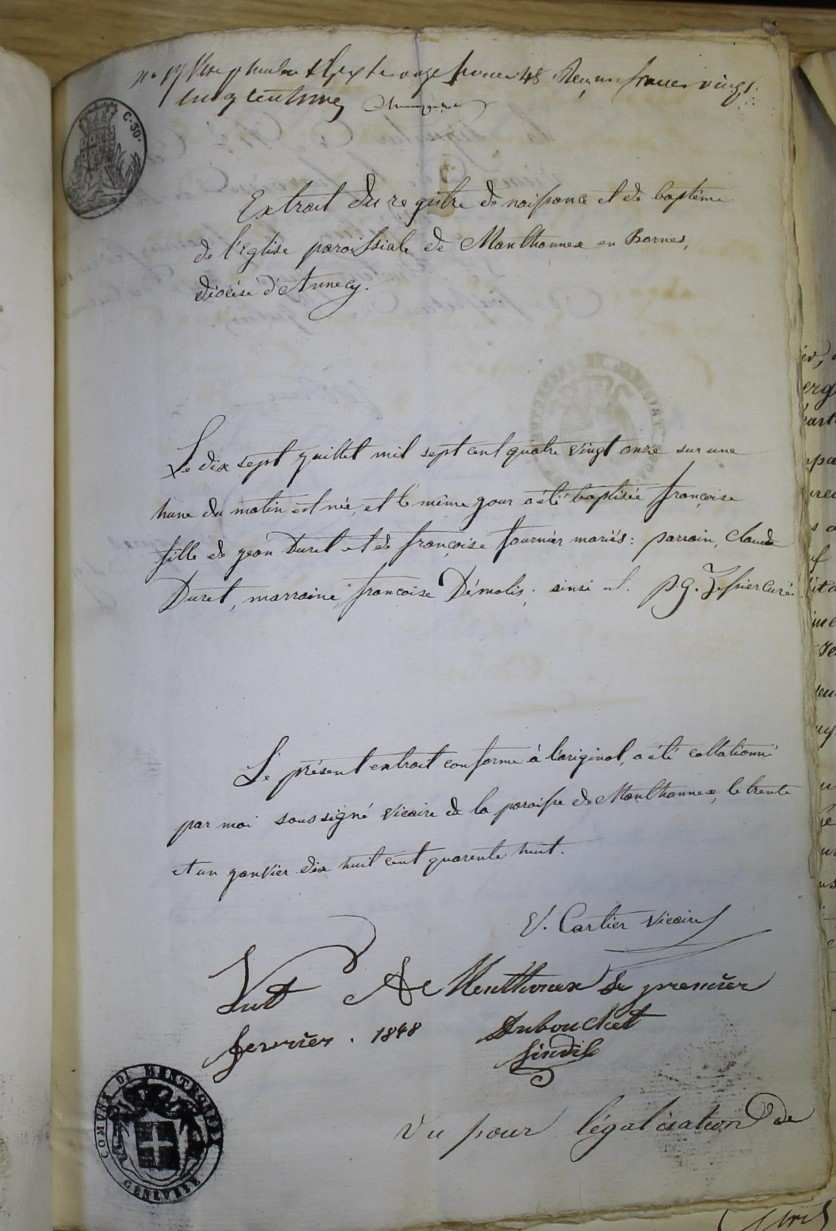 onze fevrier 48 Reçu un franc vingt
cinq centimes
C. 50
Extrait du registre de naissance et de baptême
de l'église paroissiale de Menthonnex en Bornes,
diocèse d'Annecy.
Le dix sept juillet mil sept cent quatre vingt onze sur une
hure du matin est née, et le même jour a été baptisée françoise
fille de jean Duret et de françoise fournier mariés : parrain, Claude
Duret, marraine françoise Démolis ; ainsi est. curé
Le présent extrait conforme à l'original, a été collationné
par moi soussigné vicaire de la paroisse de Menthonnex, le trente
et un janvier dix huit cent quarente huit.
V. Cartier vicaire
Vut A Menthonex Le premier
fevrier. 1848 Dubouchet
Sindic
COMUNE DI MENTHONEX
GENEVESE
Vu pour légalisation de